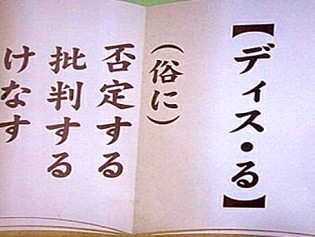 【ディス・る】
(俗に)
否定する
批判する
けなす